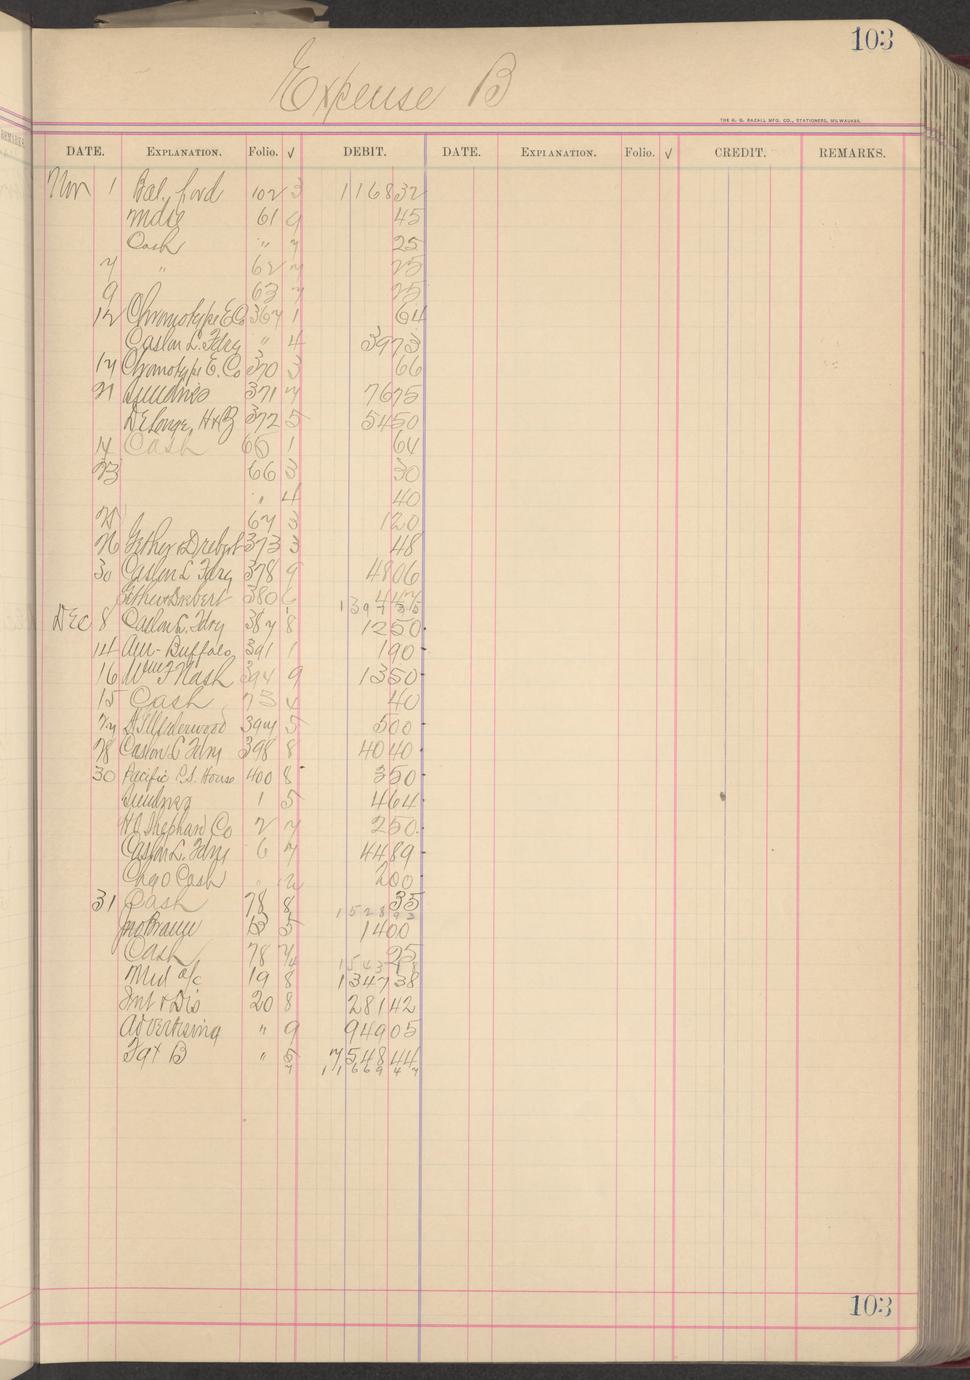 103
Expense B
THE H. G. RAZALL MFG. CO., STATIONERS, MILWAUKEE.
DATE. EXPLANATION. Folio. √ DEBIT. DATE. EXPLANATION. Folio. √ CREDIT. REMARKS.
Nov 1 Bal. ford 102 3 116832
Mdse 61 9 45
Cash " 7 25
7 " 62 7 25
9 63 7 25
12 Chromotype E Co 367 1 64
Caslon L. Fdry " 4 3973
17 Chromotype E. Co 370 3 66
21 Sundries 371 7 7675
372 5 5450
14 Cash 65 1 64
23 66 3 30
" 4 40
67 3 120
26 Gether & Drebert 373 3 48
30 Caslon L Fdry 378 9 4806
Gether & Drebert 380 6 447
Dec 8 Caslon L. Fdry 387 8 1250
14 Am-Buffalo 391 1 190
16 Wm F Nash 394 9 1350
15 Cash 73 4 40
Underwood 397 5 500
28 Caslon L Fdry 398 8 4040
30 Pacific P.S. House 400 8 350
Sundries 1 5 464
H O Shephard Co 2 7 250
Caslon L. Fdry 6 7 4489
Chgo Cash " 200
31 Cash 78 8 35
152892
Jno Braun 13 5 1400
Cash 78 25
Md a/c 19 8 134738
Int & Dis 20 8 28142
Advertising " 9 94905
B " 5 754844
1166947
103